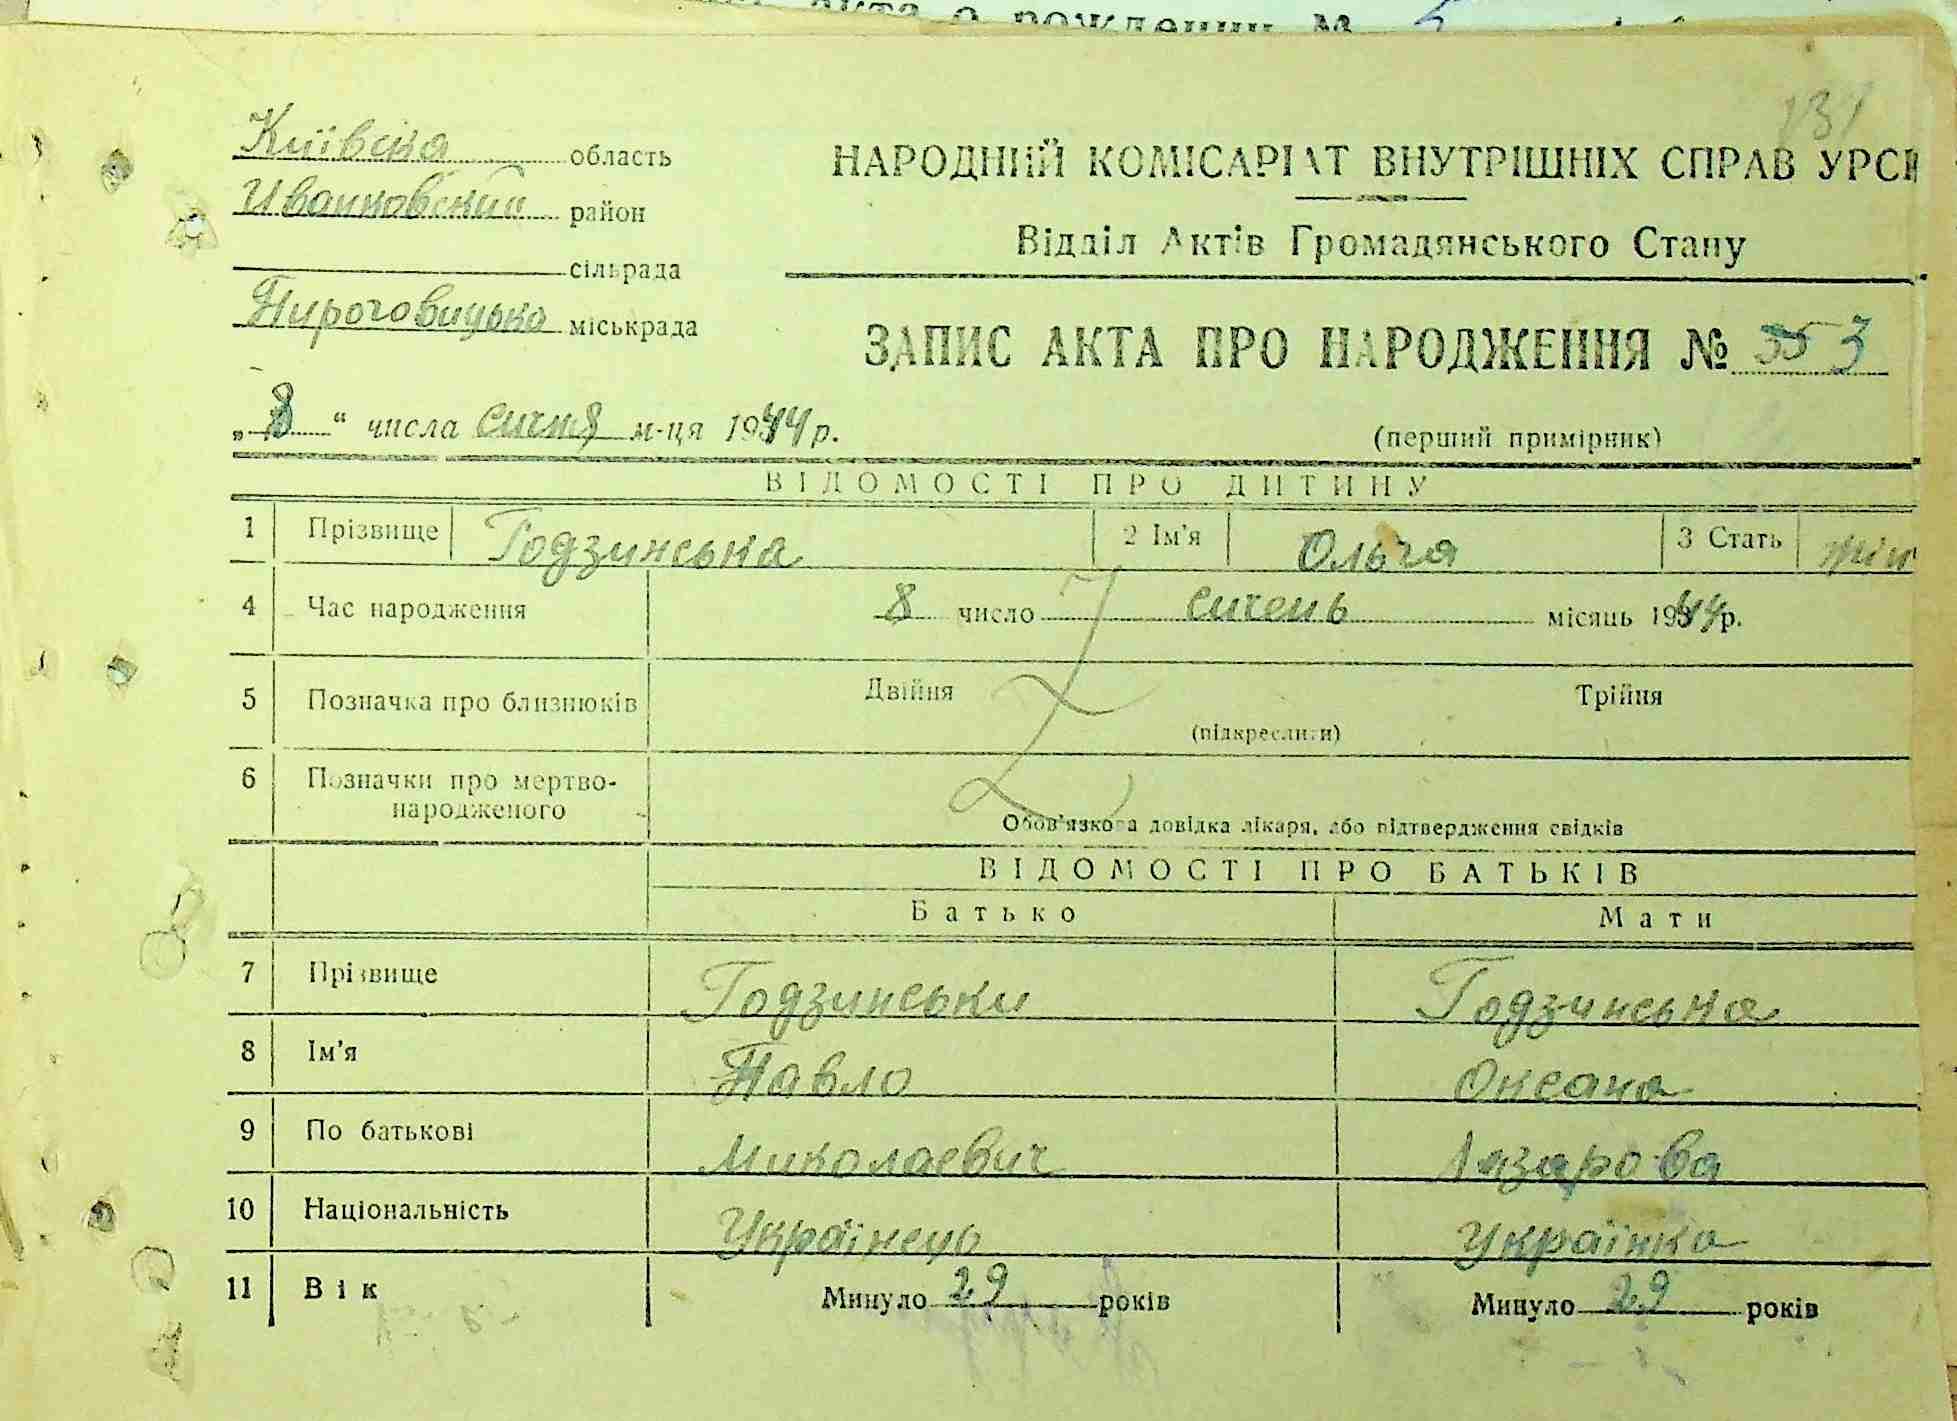 акта о рождении №
131
Київська область
Иванковский район
сільрада
Пироговицька міськрада
НАРОДНИЙ КОМІСАРІАТ ВНУТРІШНІХ СПРАВ УРСР
Відділ Актів Громадянського Стану
ЗАПИС АКТА ПРО НАРОДЖЕННЯ № 3
„8“ числа січня м-ця 1944 р.
(перший примірник)
ВІДОМОСТІ ПРО ДИТИНУ
1 Прізвище Годзинська 2 Ім'я Ольга 3 Стать жін
4 Час народження 8 число сичень місяць 1944 р.
5 Позначка про близнюків Двійня Трійня
(підкреслити)
6 Позначки про мертво-
народженого
Обов'язкова довідка лікаря, або підтвердження свідків
ВІДОМОСТІ ПРО БАТЬКІВ
Батько Мати
7 Прізвище Годзинськи Годзинська
8 Ім'я Павло Оксана
9 По батькові Миколаевич Лазарова
10 Національність Українець Українка
11 Вік Минуло 29 років Минуло 29 років